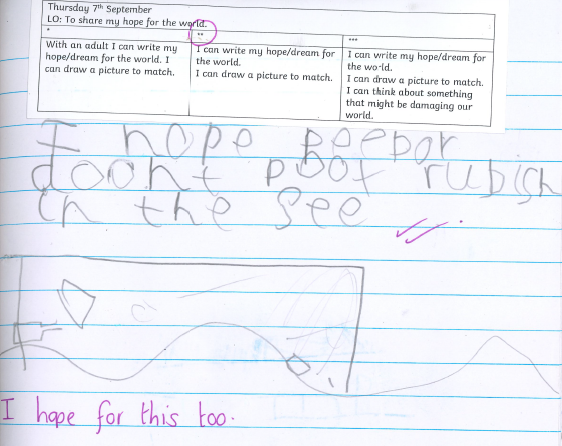 Thursday 7th September
LO: To share my hope for the world.
*
**
***
With an adult I can write my
hope/dream for the world. I
can draw a picture to match.
I can write my hope/dream for
the world.
I can draw a picture to match.
I can write my hope/dream for
the world.
I can draw a picture to match.
I can think about something
that might be damaging our
world.
I hope peepor
doont poot rubish
in the see
I hope for this too.